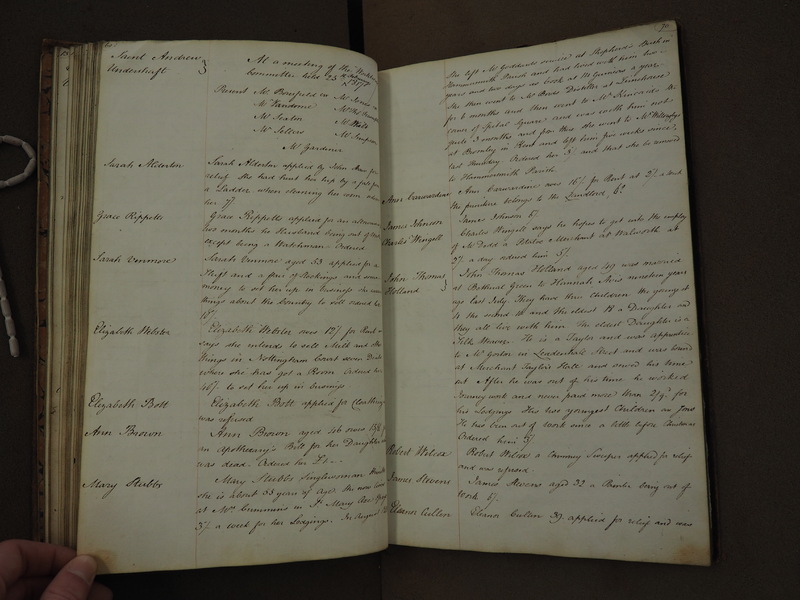 Saint Andrew
Undershaft
At a meeting of the
Committee held 25
1817
Present Mr
Mr
Mr Seaton
Mr Sellers Mr Simpson
Mr Gardener
Sarah Alderton
Sarah Alderton applied by John for
relief She had hurt her hip by a fall from
a Ladder when cleaning her room
her 7/
Grace Rippetts
Grace Rippetts applied for an allowance
two months her Husband being out of
except being a Watchman Ordered
Sarah Venmore
Sarah Venmore aged 53 applied for a
Shift and a pair of Stockings and some
money to set her up in business
things about the Country to sell ordered her
Elizabeth Webster
Elizabeth Webster owes 12/ for Rent
says she intends to sell Milk and
things in Nottingham Court seven Dials
where she has got a Room Ordered her
to set her up in business
Elizabeth Bott
Elizabeth Bott applied for Cloathing
was refused
Ann Brown
Ann Brown aged 46 owes
an Apothecary's Bill for her Daughter
was dead. Ordered her
Mary Stubbs
Mary Stubbs Singlewoman
she is about 33 years of Age She now lives
at Mrs Cummins in St Mary Axe
3/ a week for her Lodgings. In August
70
She left Mr Goddards service at Shepherds Bush in
Hammersmith Parish and had lived with him two
years and two days as Cook at 14 Guineas a year
She then went to Mr Distiller at Limehouse
for 6 months and then went to Mr
of Spital Square and was with him
quite 3 months and from there she went to Mr
at Bromley in Kent and left him five weeks since
last Thursday Ordered her 3/ and that she be removed
to Hammersmith Parish
Ann Carwardine
Ann Carwardine owes 16/ for Rent at 2/ a week
the furniture belongs to the Landlord
James Johnson
James Johnson 5/
Charles Wingell
Charles Wingell says he hopes to get into the employ
of Mr Dodd a Potatoe Merchant at Walworth at
a day ordered him 5/
John Thomas
Holland
John Thomas Holland aged 49 was married
at Bethnal Green to Hannah nineteen years
ago last July. They have three Children the youngest
is the second 14 and the eldest 18 a Daughter and
they all live with them The eldest Daughter is a
Silk Weaver. He is a Taylor and was apprentice
to Mr Gorton in Leadenhall Street and was bound
at Merchant Taylors Hall and served his time
out After he was out of his time he worked
Journey work and never paid more than for
his Lodgings His two youngest Children are Jane
He has been out of work since a little before Christmas
Ordered him 5/
Robert Wilcox
Robert Wilcox a Chimney Sweeper applied for relief
and was refused
James Stevens
James Stevens aged 32 a being out of
work 5/
Eleanor Cullen
Eleanor Cullen 39. applied for relief and was